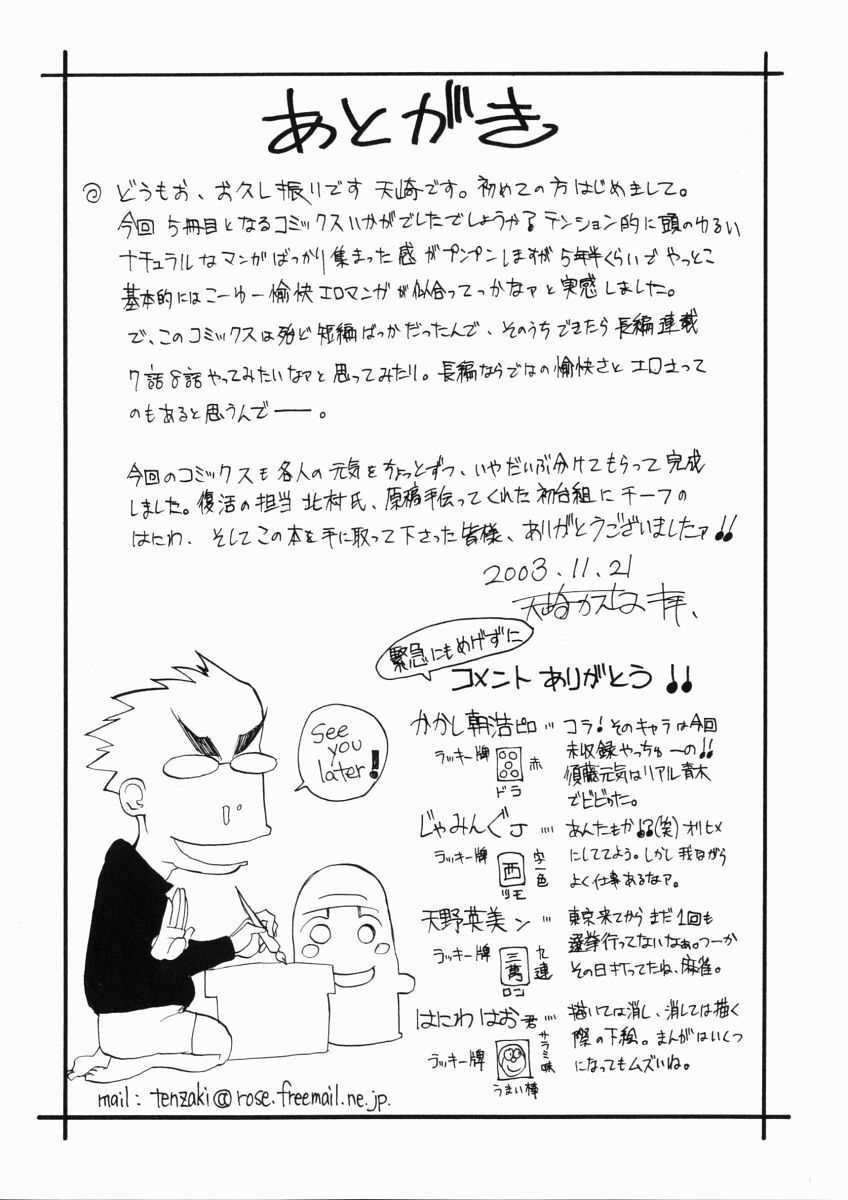 あとがき
どうもお、お久し振りです 天崎です。初めての方はじめまして。
今回 5冊目となるコミックスいかがでしたでしょうか。テンション的に頭のゆるい
ナチュラルなマンガばっかり集まった感がプンプンしますが5年半くらいでやっとこ
基本的にはこーゆー愉快エロマンガが似合ってっかなァと実感しました。
で、このコミックスは殆ど短編ばっかだったんで、そのうちできたら長編連載
7話8話やってみたいなァと思ってみたり。長編ならではの愉快さとエロさって
のもあると思うんでー。
今回のコミックスも各人の元気をちょっとずつ、いやだいぶ分けてもらって完成
しました。復活の担当 北村氏、原稿手伝ってくれた初台組にチーフの
はにわ、そしてこの本を手に取って下さった皆様、ありがとうございましたァ!!
2003.11.21
緊急にもめげずに
コメントありがとう!!
See
you
later!
かかし朝浩ピロ…
ラッキー牌
赤
ドラ
コラ!そのキャラは今回
未収録やっちゅーの!!
須藤元気はリアル青木
でビビった。
じゃみんぐJ…
ラッキー牌
西
字一色
ツモ
あんたもか!?(笑)オリヒメ
にしててよう。しかし我ながら
よく仕事あるなァ。
天野英美ン…
ラッキー牌
三萬
九連
ロン
東京来てからまだ1回も
選挙行ってないなぁ。つーか
その日打ってたね、麻雀。
はにわはお君…
ラッキー牌
サラミ味
うまい棒
描いては消し、消しては描く
際の下絵。まんがはいくつ
になってもムズいね。
mail: tenzaki@rose.freemail.ne.jp.